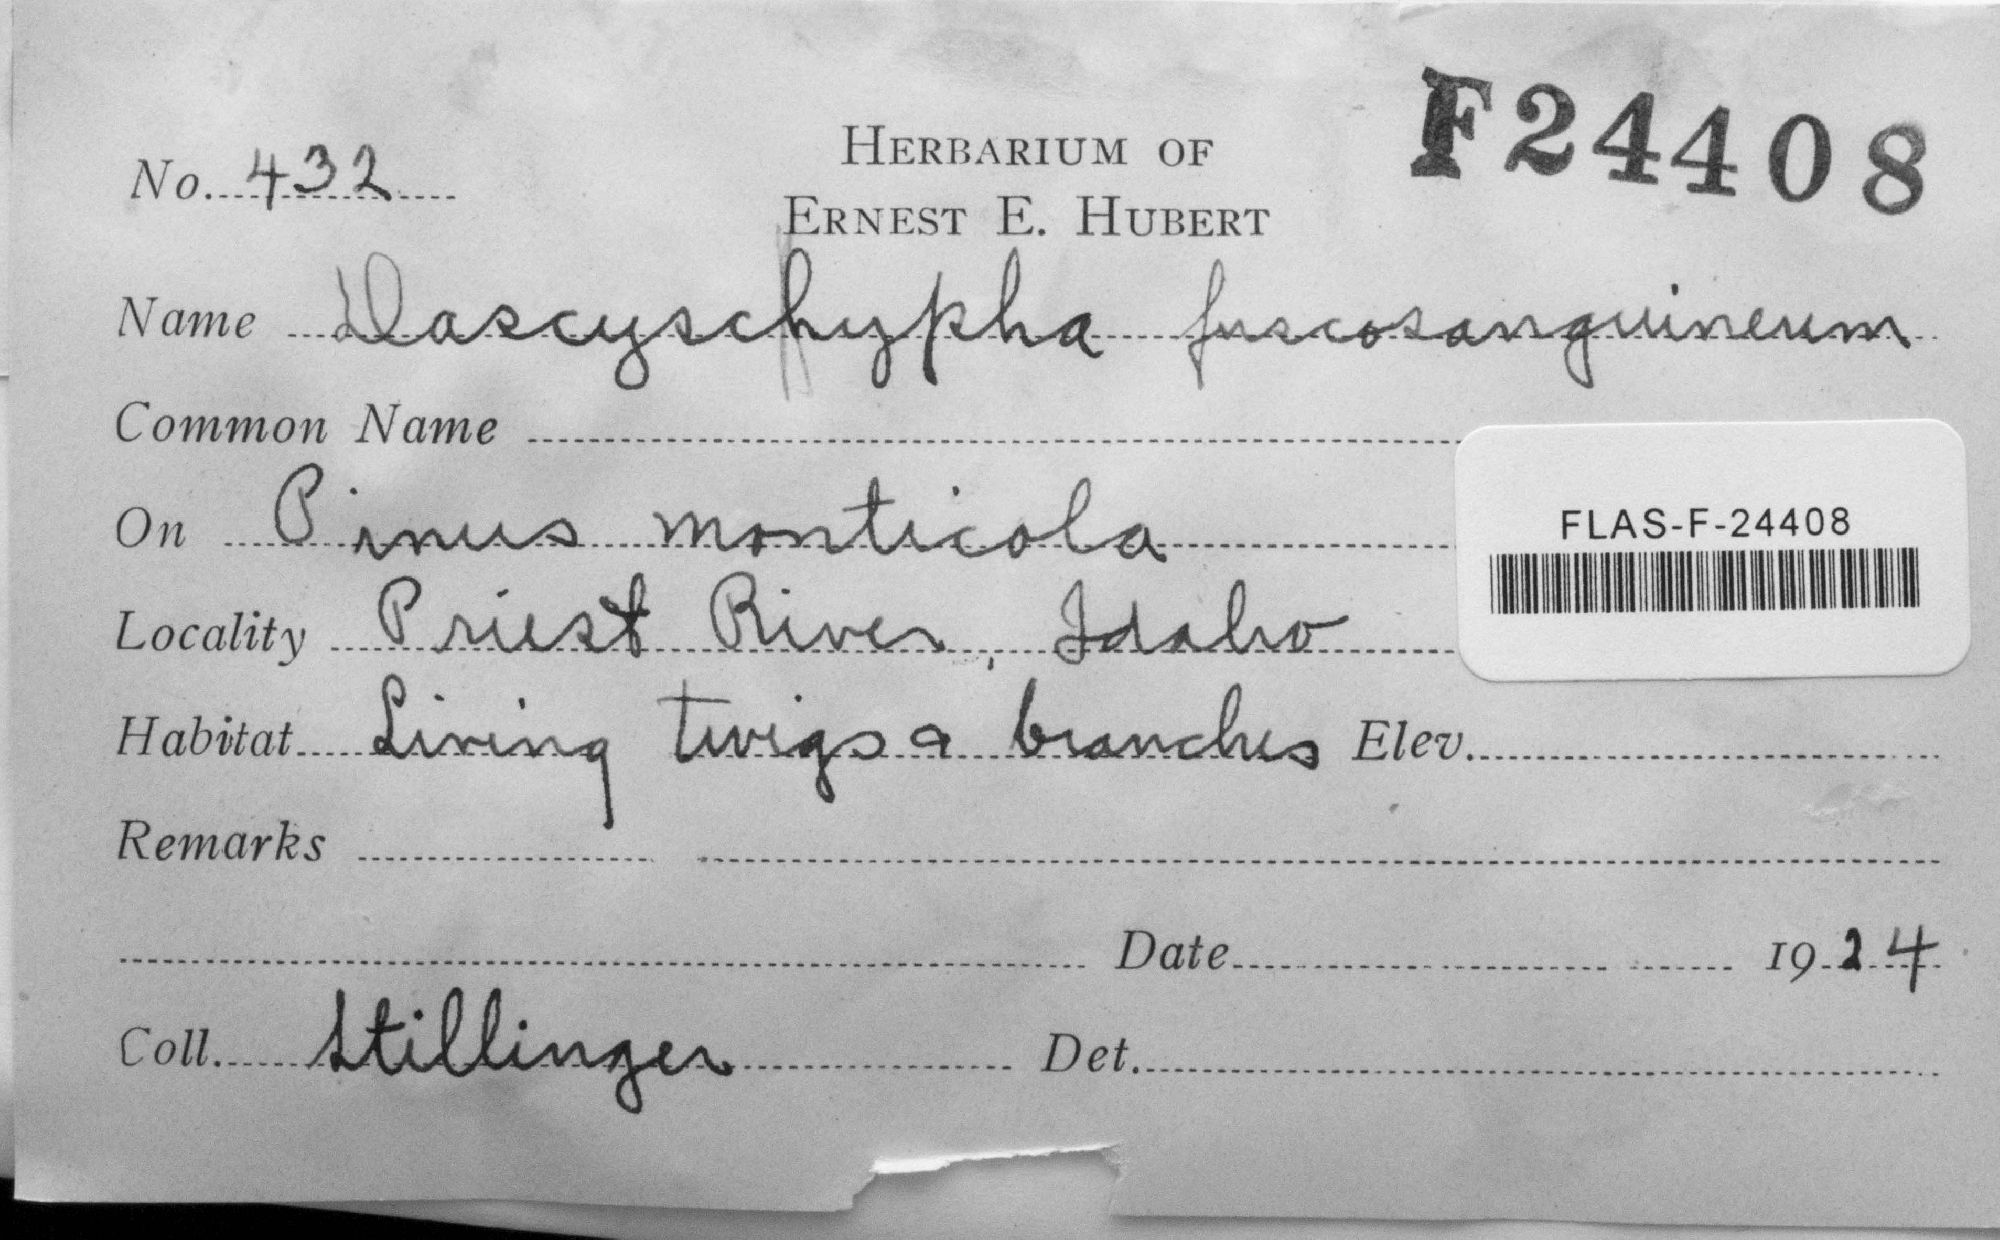 F24408
HERBARIUM OF
No. 432
ERNEST E. HUBERT
Name Dascyschypha fuscosanguineum
Common Name
On Pinus monticola
FLAS-F-24408
Locality Priest River, Idaho
Habitat Living twigs & branches Elev.
Remarks
Date 1924
Coll. Stillinger Det.